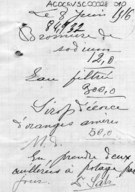 ACOCHVSCC0028 010
Le 8 Juin 1916
Bromure de
sodium
12,0
Eau filtrée
300,0
Sirop d'écorce
d'oranges amères
50,0
M
En prendre deux
cuillerées à potage par
jour.